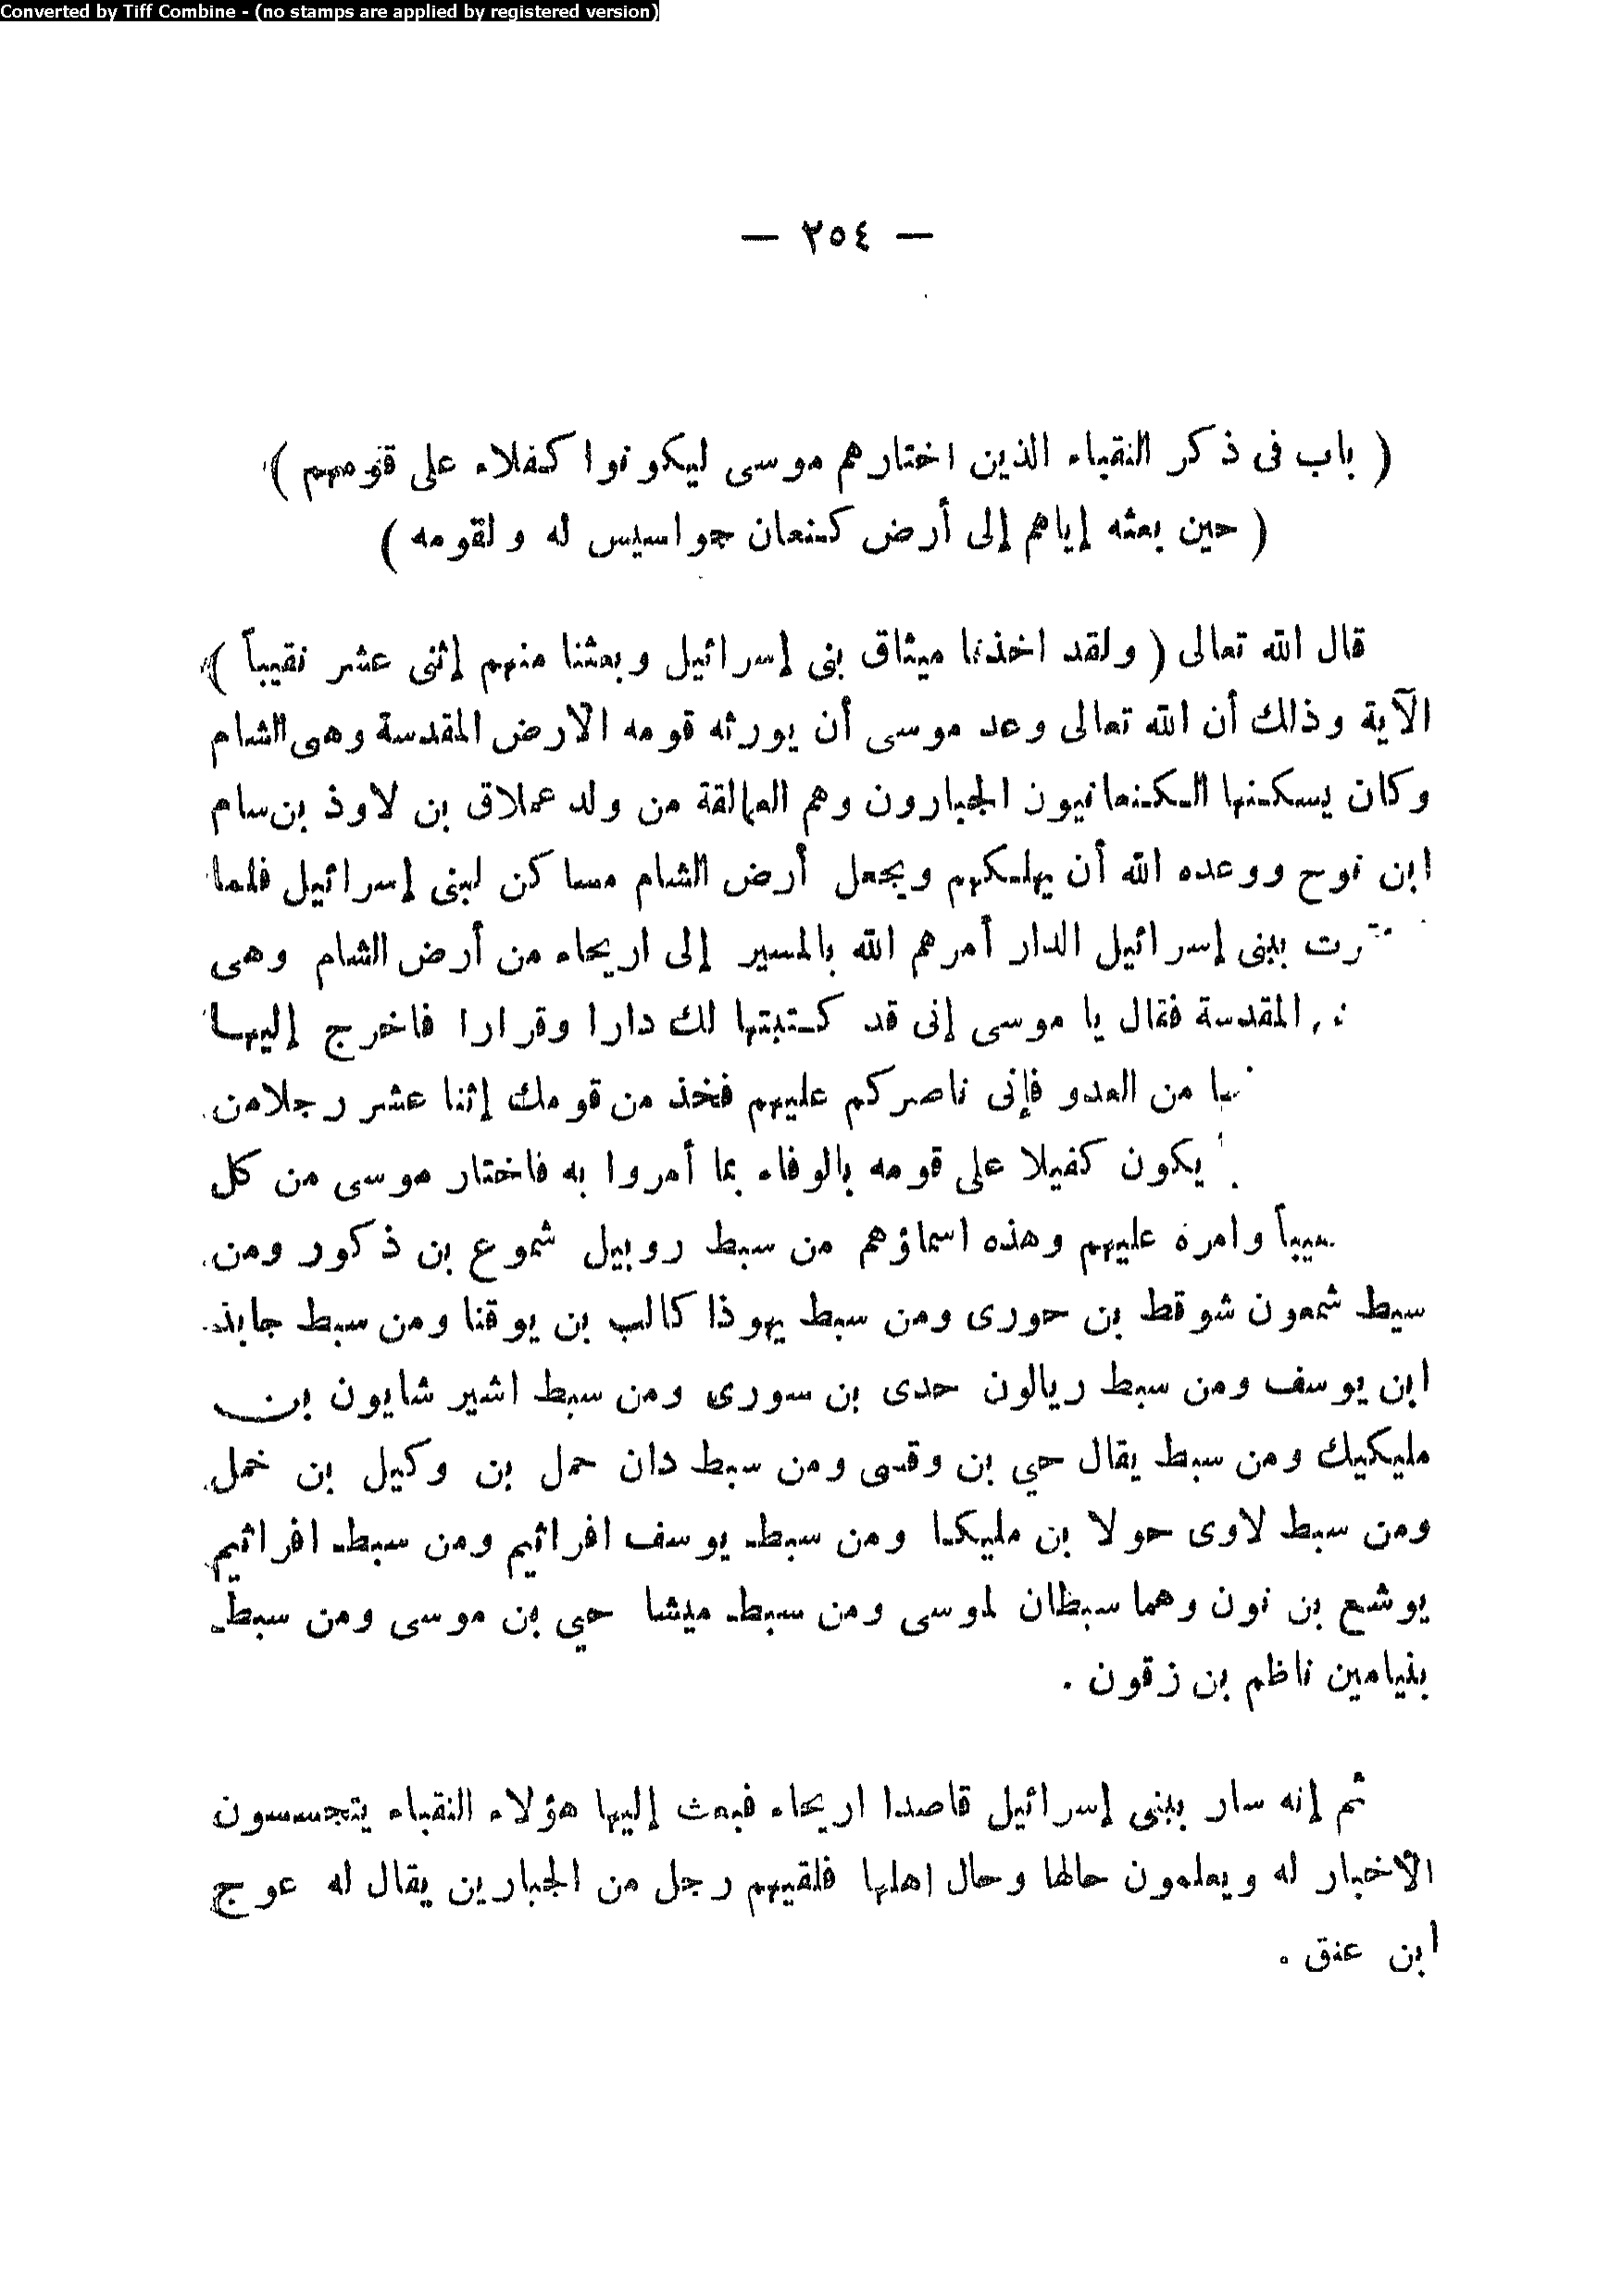 Converted by Tiff Combine - (no stamps are applied by registered version)
— ٢٥٤ —
( باب فى ذكر النقباء الذين اختارهم موسى ليكونوا كفلاء على قومهم )
( حين بعثه إياهم إلى أرض كنعان جواسيس له ولقومه )
قال الله تعالى ( ولقد اخذنا ميثاق بنى إسرائيل وبعثنا منهم إثنى عشر نقيباً )
الآية وذلك أن الله تعالى وعد موسى أن يورثه قومه الأرض المقدسة وهى الشام
وكان يسكنها الكنعانيون الجبارون وهم العمالقة من ولد عملاق بن لاوذ بن سام
ابن نوح ووعده الله أن يهلكهم ويجعل أرض الشام مساكن لبنى إسرائيل فلما
ببنى إسرائيل الدار أمرهم الله بالمسير إلى اريحاء من أرض الشام وهى
المقدسة فقال يا موسى إنى قد كتبتها لك دارا وقرارا فاخرج إليها
من العدو فإنى ناصركم عليهم فخذ من قومك إثنا عشر رجلا من
يكون كفيلا على قومه بالوفاء بما أمروا به فاختار موسى من كل
وامره عليهم وهذه اسماؤهم من سبط روبيل شموع بن ذكور ومن
سيط شمعون شوقط بن حورى ومن سبط يهوذا كالب بن يوقنا ومن سبط جابذ
ابن يوسف ومن سبط ريالون حدى بن سورى ومن سبط اشير شايون بن
مليكيك ومن سبط يقال حي بن وقسى ومن سبط دان حمل بن وكيل بن خمل
ومن سبط لاوى حولا بن مليكا ومن سبط يوسف افراثيم ومن سبط افراثيم
يوشع بن نون وهما سبظان لموسى ومن سبط ميشا حي بن موسى ومن سبط
بنيامين ناظم بن زقون .
ثم إنه سار ببنى إسرائيل قاصدا اريحاء فبعث إليها هؤلاء النقباء يتجسسون
الأخبار له ويعلمون حالها وحال اهلها فلقيهم رجل من الجبارين يقال له عوج
ابن عنق .